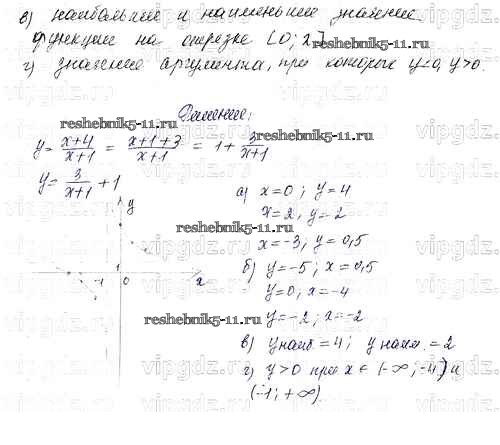 в) наибольшее и наименьшее значение
функции на отрезке [0; 2]
г) значение аргумента, при которых y<0, y>0.
Решение:
reshebnik5-11.ru
y = x+4/x+1 = x+1+3/x+1 = 1 + 3/x+1
y = 3/x+1 + 1
а) x=0; y=4
x=2, y=2
reshebnik5-11.ru
x=-3, y=0,5
б) y=-5; x=0,5
y=0, x=-4
y=-2; x=-2
reshebnik5-11.ru
в) y наиб.=4; y наим.=2
г) y>0 при x ∈ (-∞; -4) и
(-1; +∞)
reshebnik5-11.ru
y
1
-1
0
x
vipgdz.ru